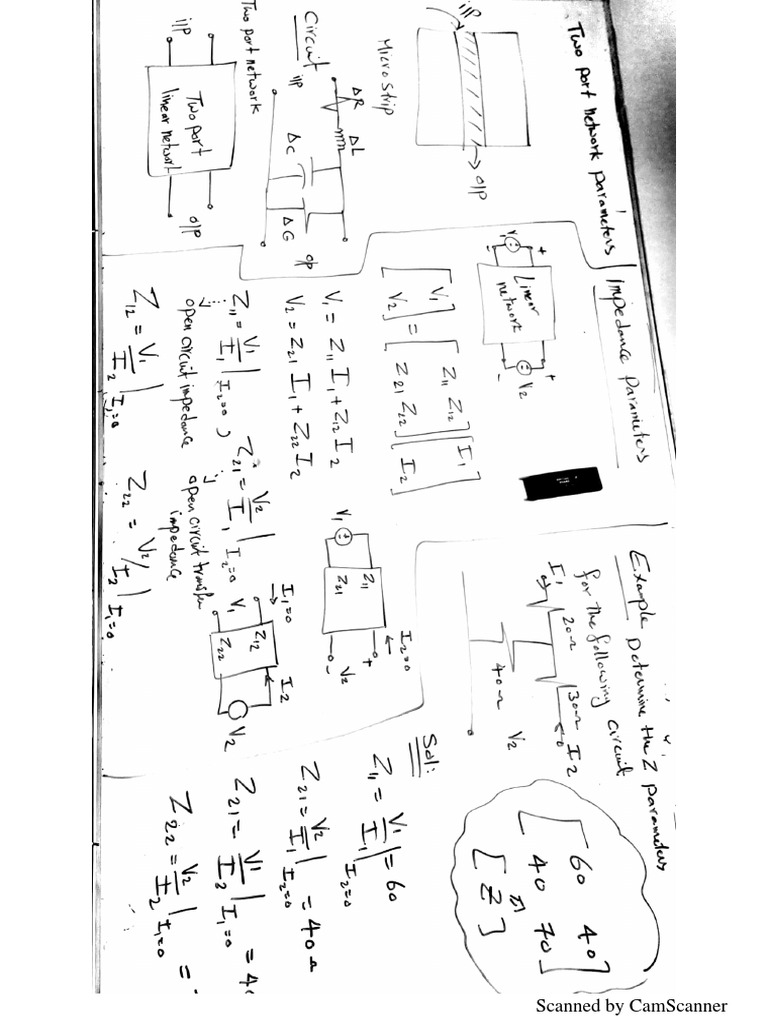 Two port network parameters
i/P
o/P
Micro Strip
Circuit
i/P
ΔR ΔL
ΔC ΔG
o/P
Two port network
i/P
Two port
linear network
o/P
Impedance Parameters
V1
+
-
Linear
network
+
-
V2
[V1 V2] = [Z11 Z12 Z21 Z22] [I1 I2]
V1 = Z11 I1 + Z12 I2
V2 = Z21 I1 + Z22 I2
Z11 = V1/I1 | I2=0 , Z21 = V2/I1 | I2=0
open circuit impedance
open circuit transfer
impedance
Z12 = V1/I2 | I1=0 Z22 = V2/I2 | I1=0
V1
Z11
Z21
I2=0
+
V2
-
I1=0
V1
Z12
Z22
I2
V2
Example Determine the Z parameters
for the following circuit
I1 20Ω 30Ω I2
40Ω V2
[60 40
40 70]
[Z]
Sol:
Z11 = V1/I1 | I2=0 = 60
Z21 = V2/I1 | I2=0 = 40Ω
Z21 = V1/I2 | I1=0 = 4
Z22 = V2/I2 | I1=0 =
Scanned by CamScanner